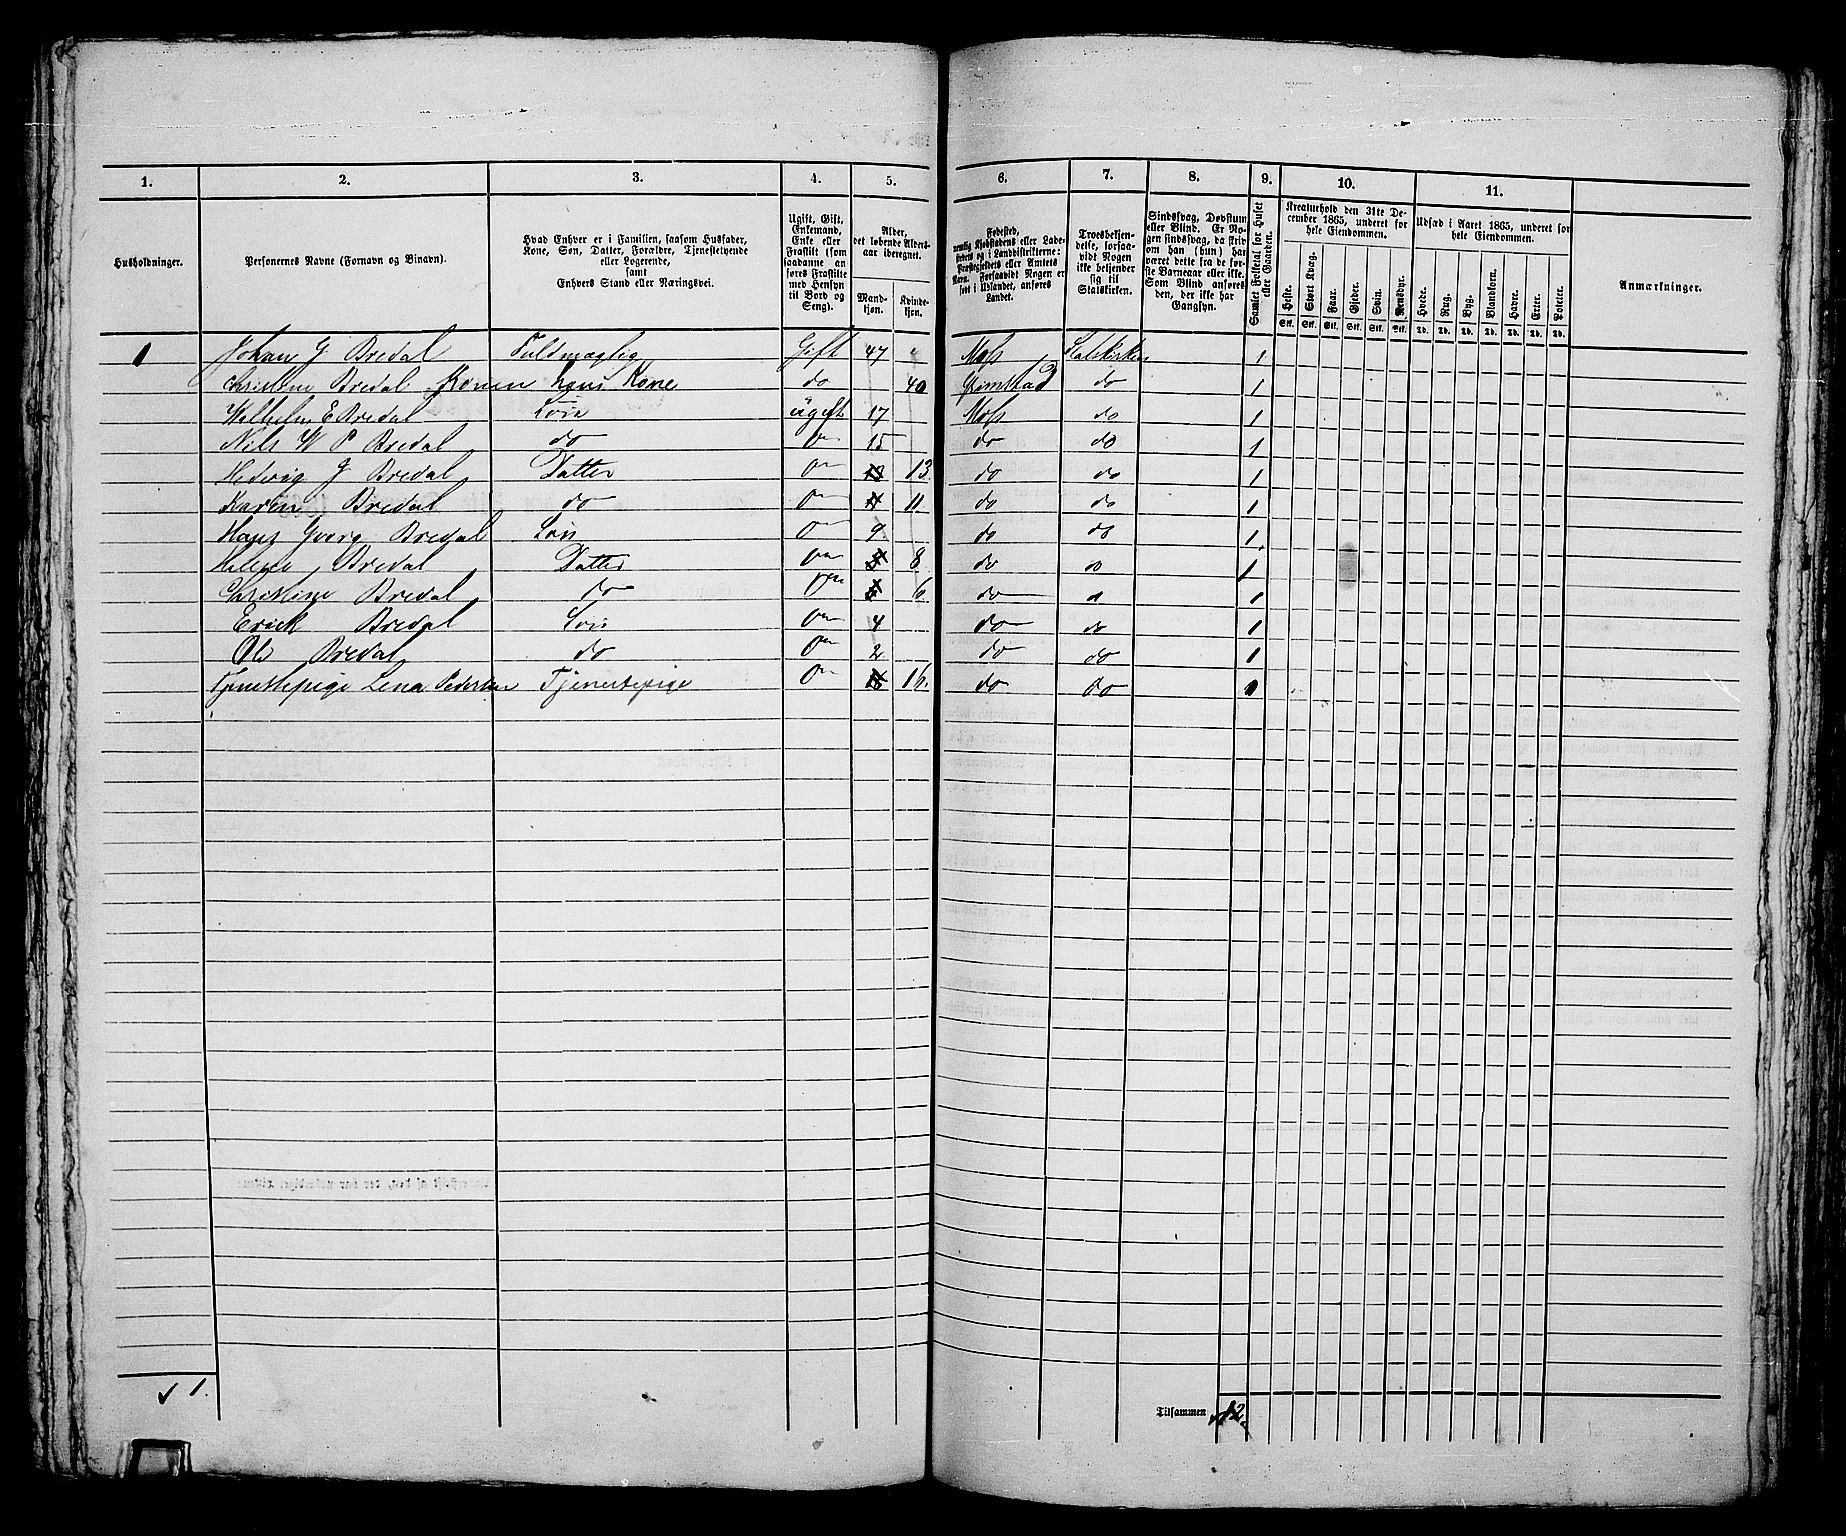 1. 2. 3. 4. 5. 6. 7. 8. 9. 10. 11.
Husholdninger.
Personernes Navne (Fornavn og Binavn).
Hvad Enhver er i Familien, saasom Husfader, Kone, Søn, Datter, Forældre, Tjenestetyende eller Logerende, samt Enhvers Stand eller Næringsvei.
Ugift, Gift, Enkemand, Enke eller Fraskilt (som saadanne anføres Fraskilte med Hensyn til Bord og Seng).
Alder, det løbende Aldersaar iberegnet.
Mandkjøn. Kvindekjøn.
Fødested, nemlig Kjøbstadens eller Ladestedets og i Landdistrikterne: Præstegjeldets eller Amtets Navn. Forsaavidt Nogen er født i Udlandet, anføres Landet.
Troesbekjendelse, forsaavidt Nogen ikke bekjender sig til Statskirken.
Sindssvag, Døvstum eller Blind. Er Nogen sindssvag, da skrives om han (hun) har været dette fra de første Barneaar eller ikke. Som Blind anføres den, der ikke har Gangsyn.
Samlet Folketal for Huset eller Gaarden.
Kreaturhold den 31te December 1865, underet for hele Eiendommen.
Heste. Stort Kvæg. Faar. Gjeder. Svin. Rensdyr.
Stk. Stk. Stk. Stk. Stk. Stk.
Udsæd i Aaret 1865, underet for hele Eiendommen.
Hvede. Rug. Byg. Blandkorn. Havre. Erter. Poteter.
Td. Td. Td. Td. Td. Td. Td.
Anmærkninger.
1 Johan G Bredal Fuldmægtig Gift 47 Moss Statskirken 1
Christine Bredal Konen hans Kone do 40 Grimstad do 1
Wilhelm E Bredal Søn ugift 17 Moss do 1
Nils W P Bredal do 15 do do 1
Hedvig J Bredal Datter 13 13 do do 1
Karen Bredal do 11 11 do do 1
Hans Georg Bredal Søn 9 do do 1
Helene Bredal Datter 8 do do 1
Christine Bredal do 6 do do 1
Erick Bredal Søn 4 do do 1
Ole Bredal do 2 do do 1
Tjenestepige Lena Pedersen Tjenestepige 16 16 do do 1
√ 1.
Tilsammen 12